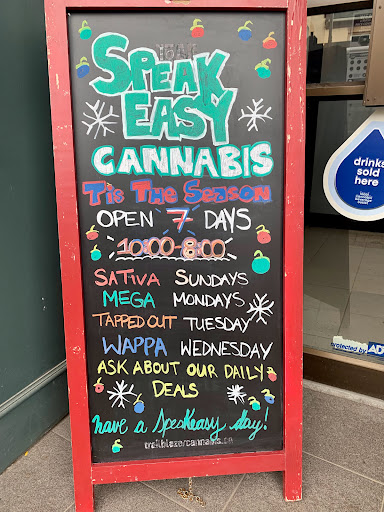 SPEAK
EASY
CANNABIS
TIS THE SEASON
OPEN 7 DAYS
10:00-8:00
SATIVA SUNDAYS
MEGA MONDAYS
TAPPED OUT TUESDAY
WAPPA WEDNESDAY
ASK ABOUT OUR DAILY
DEALS
have a Speakeasy day!
trailblazercannabis.ca
drinks
sold
here
protected by AD